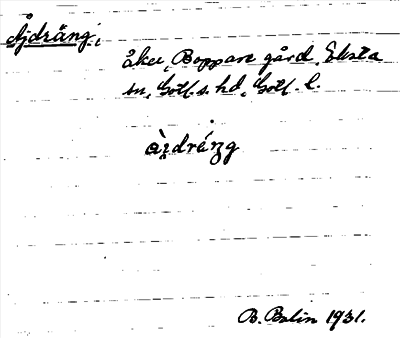 Åjdräng;
åker, Boppare gård, Eksta
sn, Gotl. s. hd, Gotl. l.
àı̯dráŋg
B. Bolin 1931.